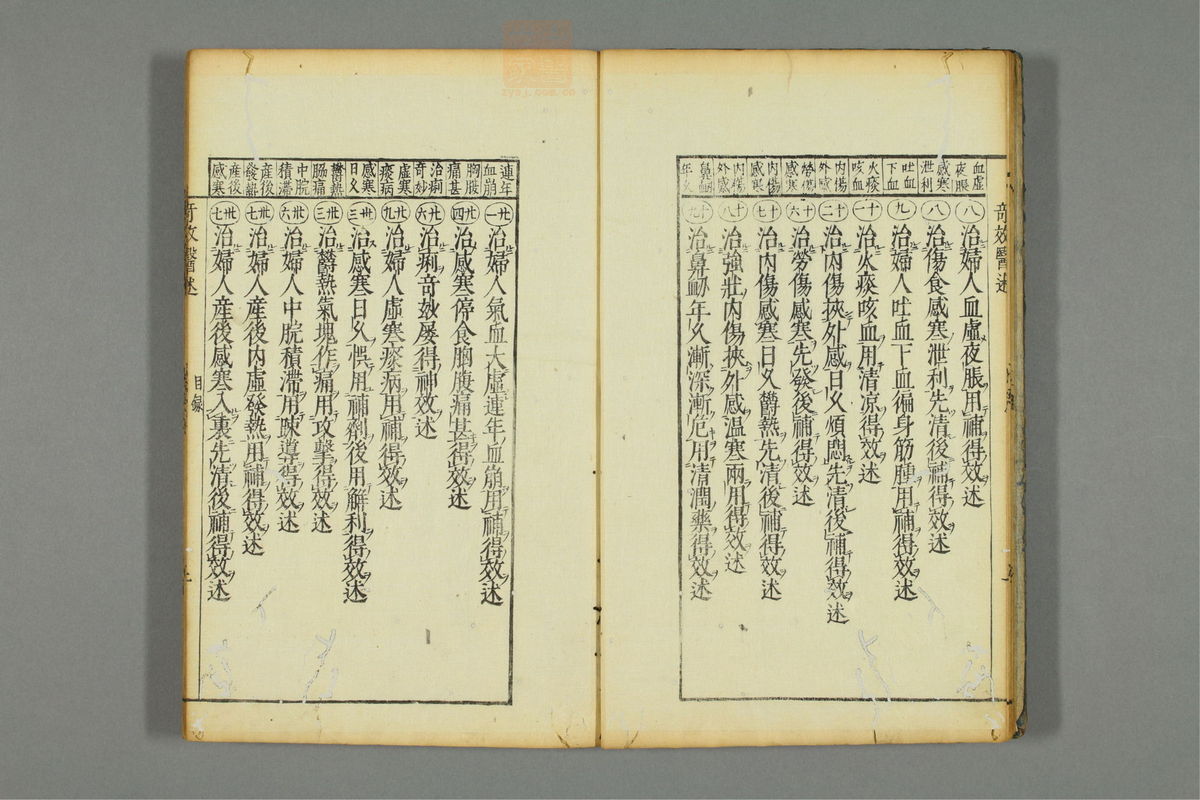 奇效醫述
血虛夜脹
八 治婦人血虛夜脹用補得效述
感寒泄利
八 治傷食感寒泄利先清後補得效述
吐血下血
九 治婦人吐血下血徧身筋腫用補得效述
火痰咳血
十一 治火痰咳血用清凉得效述
內傷外感
十二 治內傷挾外感日久煩悶先清後補得效述
勞傷感寒
十六 治勞傷感寒先發後補得效述
內傷感寒
十七 治內傷感寒日久欝熱先清後補得效述
內傷外感
十八 治強壯內傷挾外感温寒兩用得效述
鼻衂年久
十九 治鼻衂年久漸深漸危用清潤藥得效述
連年血崩
廿一 治婦人氣血大虛連年血崩用補得效述
胸腹痛甚
廿四 治感寒停食胸腹痛甚得效述
治痢奇妙
廿六 治痢奇妙屢得神效述
虛寒痰病
廿九 治婦人虛寒痰病用補得效述
感寒日久
卅三 治感寒日久悞用補劑後用解利得效述
欝熱脇痛
卅三 治欝熱氣塊作痛用攻擊得效述
中脘積滯
卅六 治婦人中脘積滯用踈導得效述
產後發熱
卅七 治婦人產後內虛發熱用補得效述
產後感寒
卅七 治婦人產後感寒入裏先清後補得效述
奇效醫述
目錄